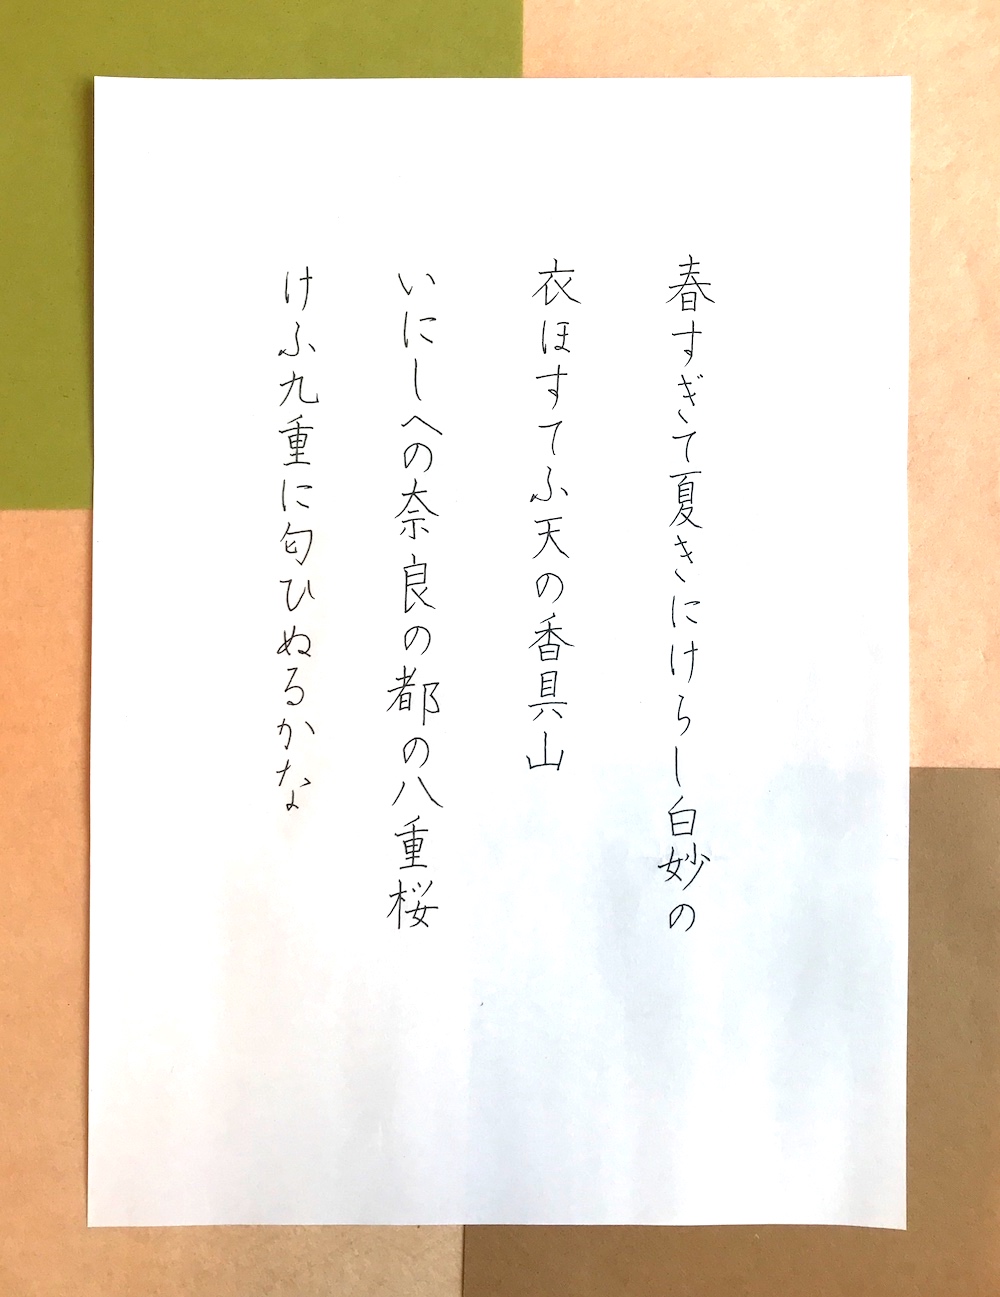 春すぎて夏きにけらし白妙の
衣ほすてふ天の香具山
いにしへの奈良の都の八重桜
けふ九重に匂ひぬるかな